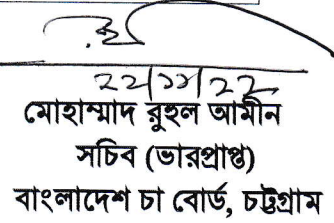 ২২/১১/২২
মোহাম্মাদ রুহুল আমীন
সচিব (ভারপ্রাপ্ত)
বাংলাদেশ চা বোর্ড, চট্টগ্রাম